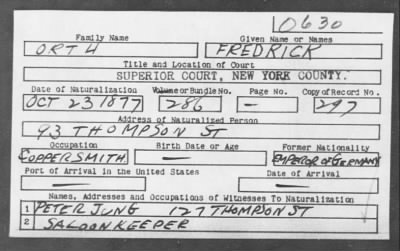 10630
Family Name Given Name or Names
ORTH FREDRICK
Title and Location of Court
SUPERIOR COURT, NEW YORK COUNTY.
Date of Naturalization Volume or Bundle No. Page No. Copy of Record No.
OCT 23 1877 286 — 297
Address of Naturalized Person
93 THOMPSON ST
Occupation Birth Date or Age Former Nationality
COPPERSMITH — EMPEROR OF GERMANY
Port of Arrival in the United States Date of Arrival
— —
Names, Addresses and Occupations of Witnesses To Naturalization
1 PETER JUNG 127 THOMPSON ST
2 SALOON KEEPER